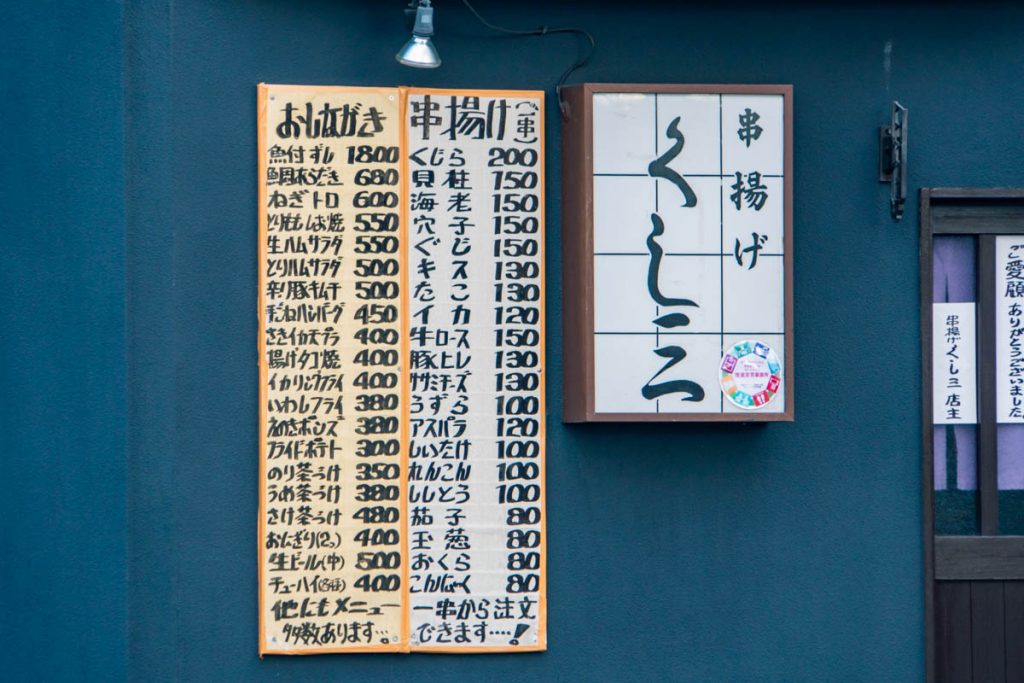 おしながき
魚付ずし 1800
鯛あらだき 680
ねぎトロ 600
とりもも しお焼 550
生ハムサラダ 550
とりハムサラダ 500
辛!豚キムチ 500
手ごねハンバーグ 450
さきイカ天プラ 400
揚げタコ焼 400
イカリングフライ 400
いわしフライ 380
ポンズ 380
フライドポテト 300
のり茶づけ 350
うめ茶づけ 380
さけ茶づけ 480
おにぎり(2つ) 400
生ビール(中) 500
チューハイ(各種) 400
他にもメニュー
多数あります…!
串揚げ(一串)
くじら 200
貝柱 150
海老 150
穴子 150
ぐじ 150
キス 130
たこ 130
イカ 120
牛ロース 150
豚ヒレ 130
ササミチーズ 130
うずら 100
アスパラ 120
しいたけ 100
れんこん 100
ししとう 100
茄子 80
玉葱 80
おくら 80
こんにゃく 80
一串から注文
できます‥‥!
串揚げ
くし二
ご愛顧ありがとうございました
串揚げくし三 店主